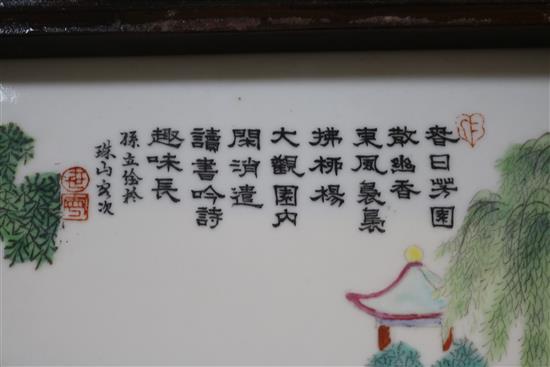 春日芳園
散幽香
東風裊裊
拂柳楊
大觀園內
閑消遣
讀書吟詩
趣味長
孫立繪於
珠山客次